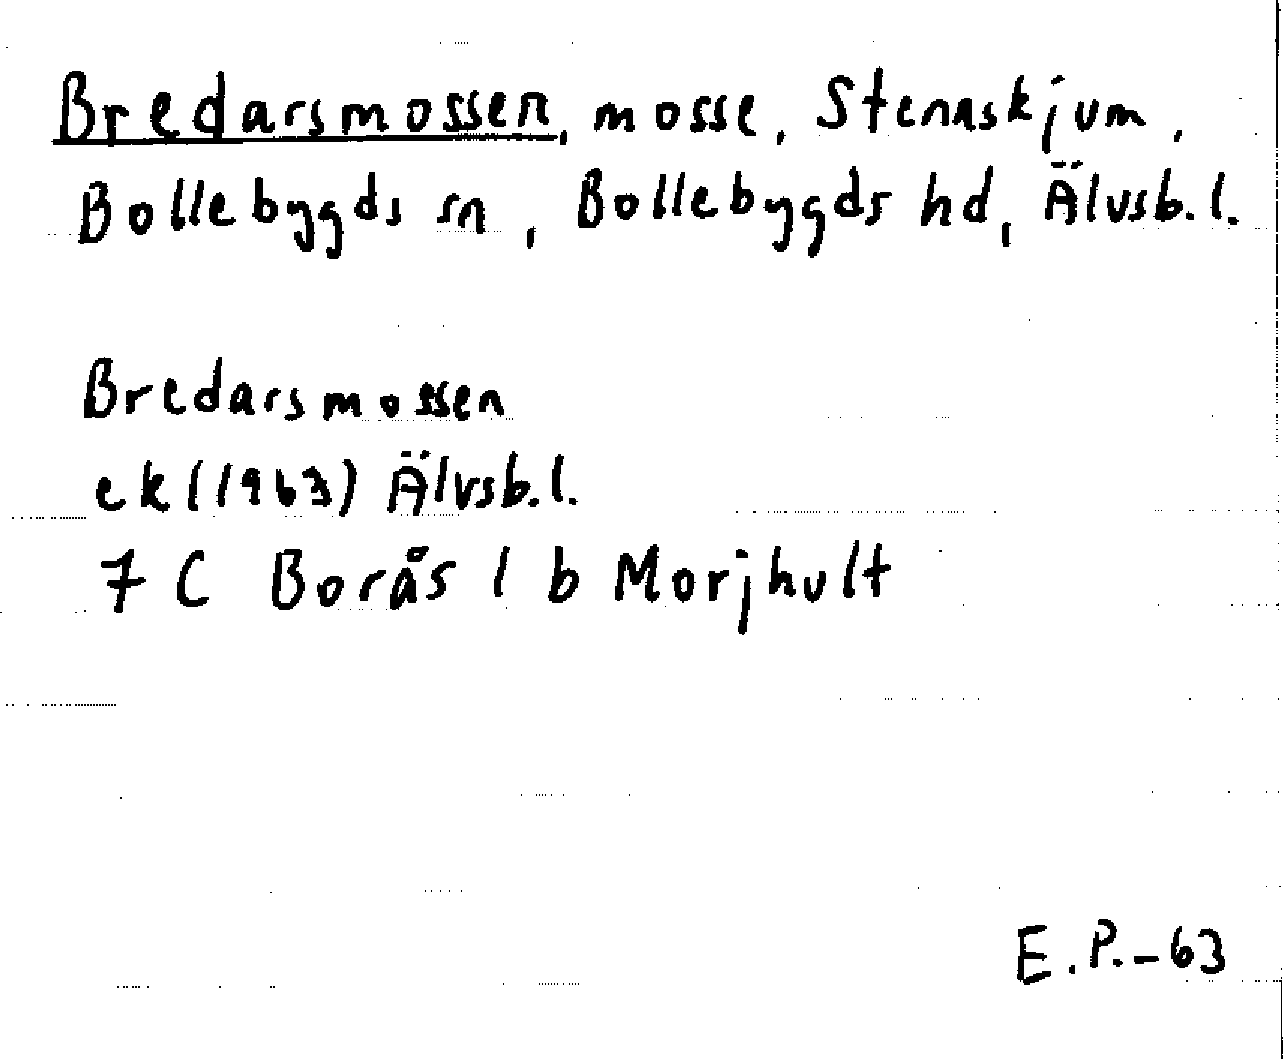 Bredarsmossen, mosse, Stenaskjum,
Bollebygds sn, Bollebygds hd, Älvsb.l.
Bredarsmossen
ek (1963) Älvsb.l.
7 C Borås l b Morjhult
E.P.-63